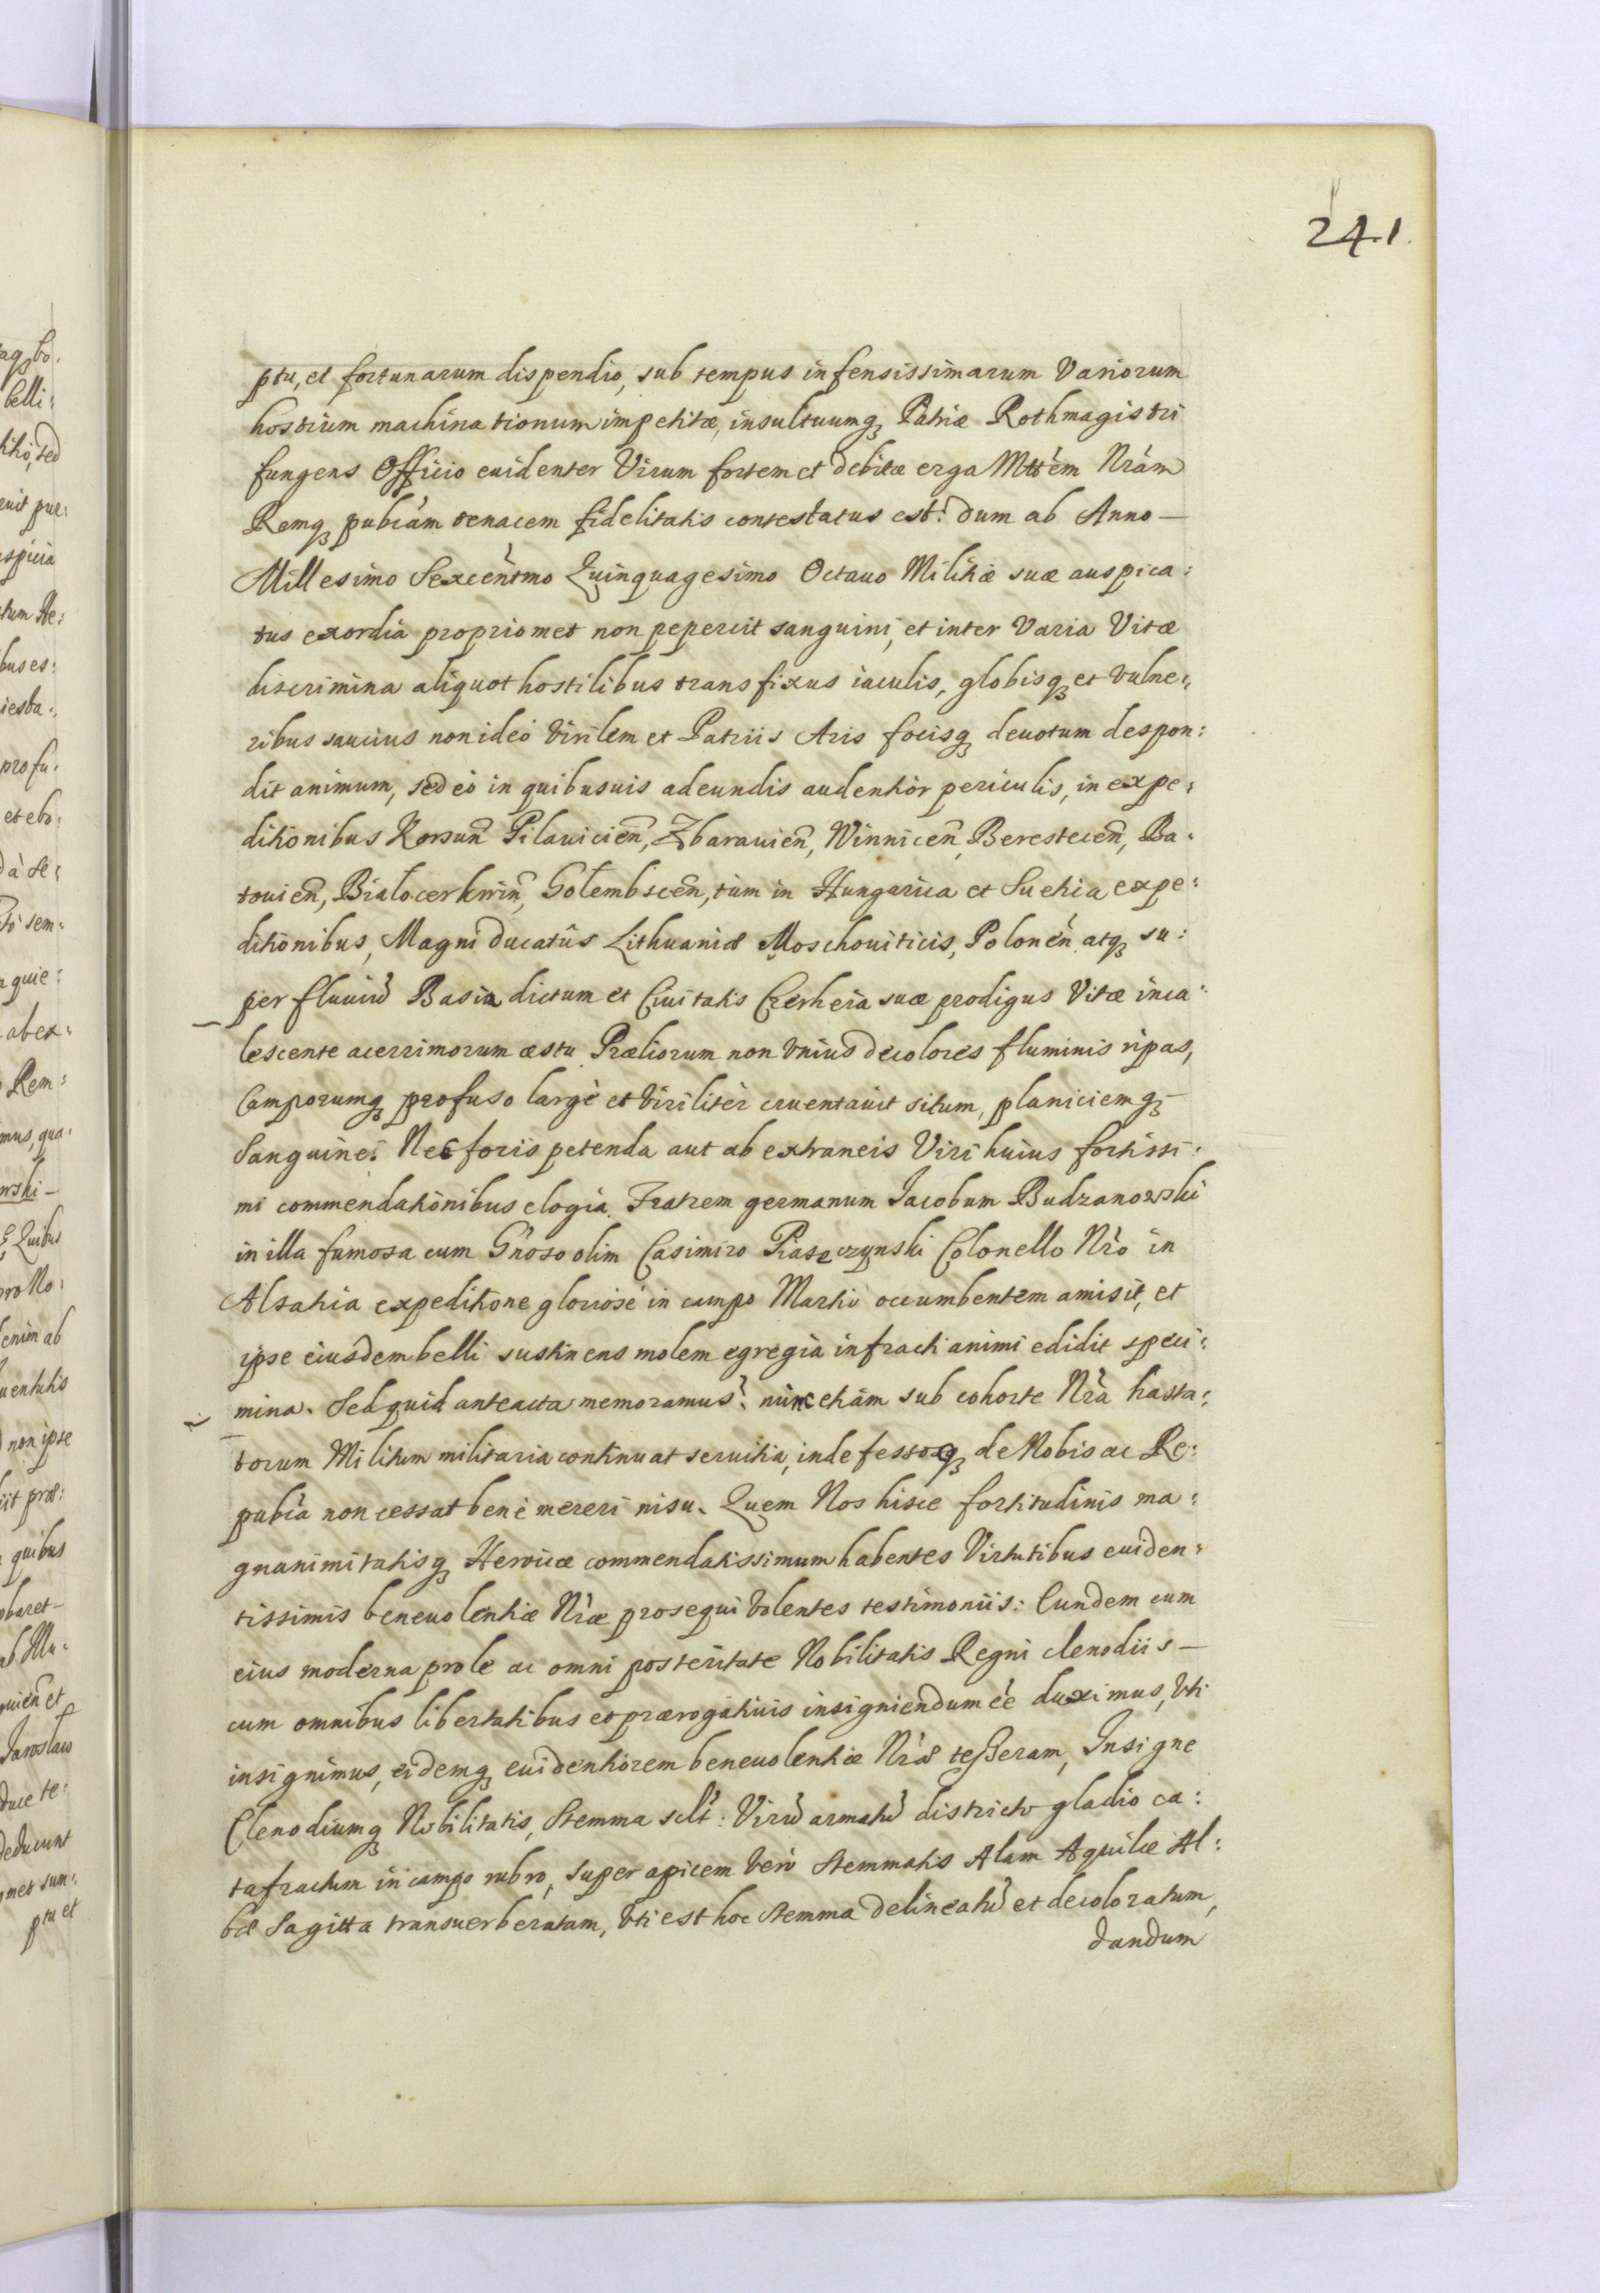 241.
ptu, et fortunarum dispendio, sub tempus infensissimarum Variorum
hostium machinationum impetitæ, insultuumq₃ Patriæ Rothmagistri
fungens Officio euidenter Virum fortem et debitæ erga Mttem Nram
Remq₃ pubcam tenacem fidelitatis contestatus est: dum ab Anno —
Millesimo Sexcentmo Quinquagesimo Octauo Militiæ suæ auspica:
tus exordia propriomet non pepercit sanguini, et inter Varia Vitæ
discrimina aliquot hostilibus transfixus iaculis, globisq₃ et Vulne:
ribus saucius non ideò Virilem et Patriis Aris focisq₃ deuotum despon:
dit animum, sed eò in quibusuis adeundis audentior periculis, in expe:
ditionibus Korsun̄ Pilauicien̄, Zbarauien̄, Winnicen̄, Berestecen̄, Ba:
touien̄, Białocerkwin̄, Gołembscen̄, tum in Hungarica et Suetica expe:
ditionibus, Magni ducatûs Lithuaniæ Moschouiticis, Polonen̄ atq₃ su:
per fluuiũ Basia dictum et Ciuitatis Czerheia suæ prodigus Vitæ inca:
lescente acerrimorum æstu Præliorum non Vnius decolores fluminis ripas,
Camporumq₃ profuso largè et Viriliter cruentauit situm, planiciemq₃
Sanguine. Nec foris petenda aut ab extraneis Viri huius fortissi:
mi commendationibus elogia. Fratrem germanum Jacobum Budzanowski
in illa fumosa cum Gnoso olim Casimiro Piaseczynski Colonello Nro in
Alsatia expeditione gloriosè in campo Martio occumbentem amisit, et
ipse eiusdem belli sustinens molem egregia infracti animi edidit speci:
mina. Sed quid anteacta memoramus? nunc etiam sub cohorte Nra hasta:
torum Militum militaria continuat seruitia, indefessoq₃ de Nobis ac Re:
pubca non cessat benè mereri nisu. Quem Nos hisce fortitudinis ma:
gnanimitatisq₃ Heroicæ commendatissimum habentes Virtutibus euiden:
tissimis beneuolentiæ Nræ prosequi Volentes testimoniis: Eundem cum
eius moderna prole ac omni posteritate Nobilitatis Regni clenodiis —
cum omnibus libertatibus et prærogatiuis insigniendum ee duximus, Vti
insignimus, eidemq₃ euidentiorem beneuolentiæ Nræ tesseram, Insigne
Clenodiumq₃ Nobilitatis, Stemma sclt: Virũ armatũ districto gladio ca:
tafractum in campo rubro, super apicem Vero Stemmatis Alam Aquilæ Al:
bæ Sagitta transuerberatam, Vti est hoc Stemma delineatũ et decoloratum,
dandum